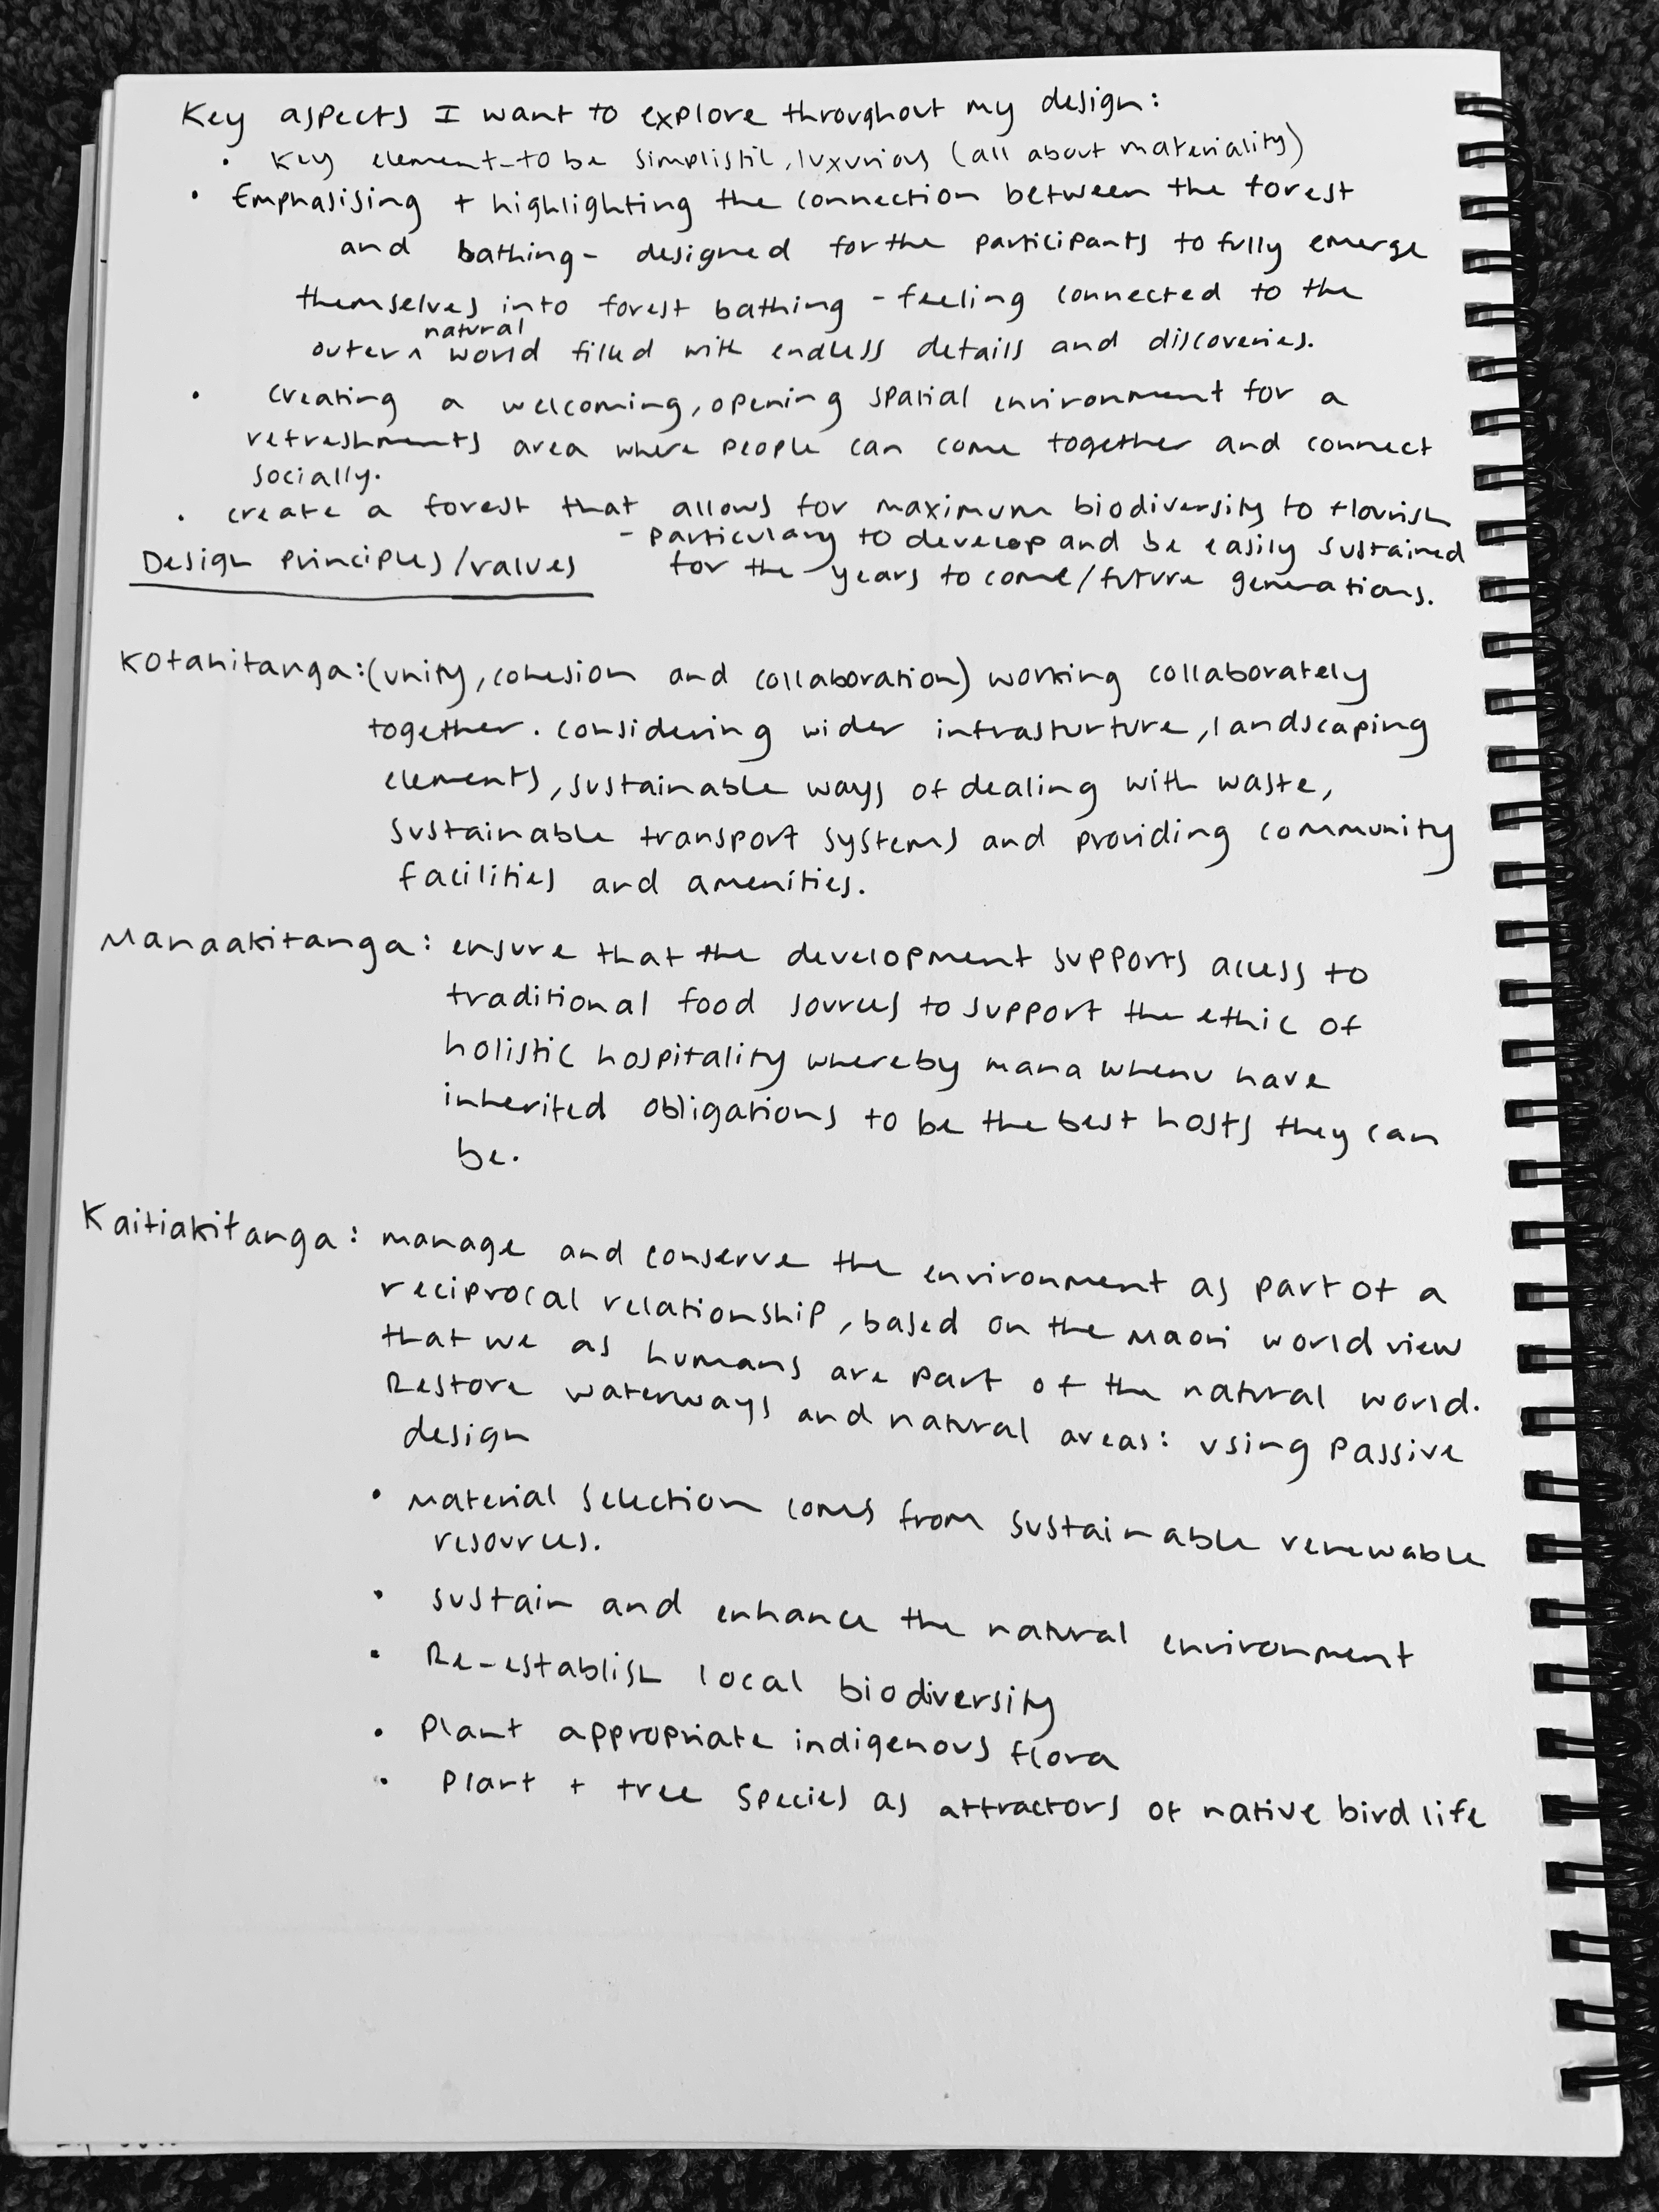 Key aspects I want to explore throughout my design:
• Key element-to be simplistic, luxurious (all about materiality)
• Emphasising + highlighting the connection between the forest
and bathing - designed for the participants to fully emerge
themselves into forest bathing - feeling connected to the
outer ^ natural world filled with endless details and discoveries.
• Creating a welcoming, opening spatial environment for a
refreshments area where people can come together and connect
socially.
• create a forest that allows for maximum biodiversity to flourish
- particulary to develop and be easily sustained
for the years to come/future generations.
Design principles/values
Kotahitanga: (unity, cohesion and collaboration) working collaborately
together. considering wider infrasturture, landscaping
elements, sustainable ways of dealing with waste,
sustainable transport systems and providing community
facilities and amenities.
Manaakitanga: ensure that the development supports access to
traditional food sources to support the ethic of
holistic hospitality whereby mana whenu have
inherited obligations to be the best hosts they can
be.
Kaitiakitanga: manage and conserve the environment as part of a
reciprocal relationship, based on the Maori world view
that we as humans are part of the natural world.
Restore waterways and natural areas: using passive
design
• Material selection comes from sustainable renewable
resources.
• sustain and enhance the natural environment
• Re-establish local biodiversity
• Plant appropriate indigenous flora
• Plant + tree species as attractors of native bird life